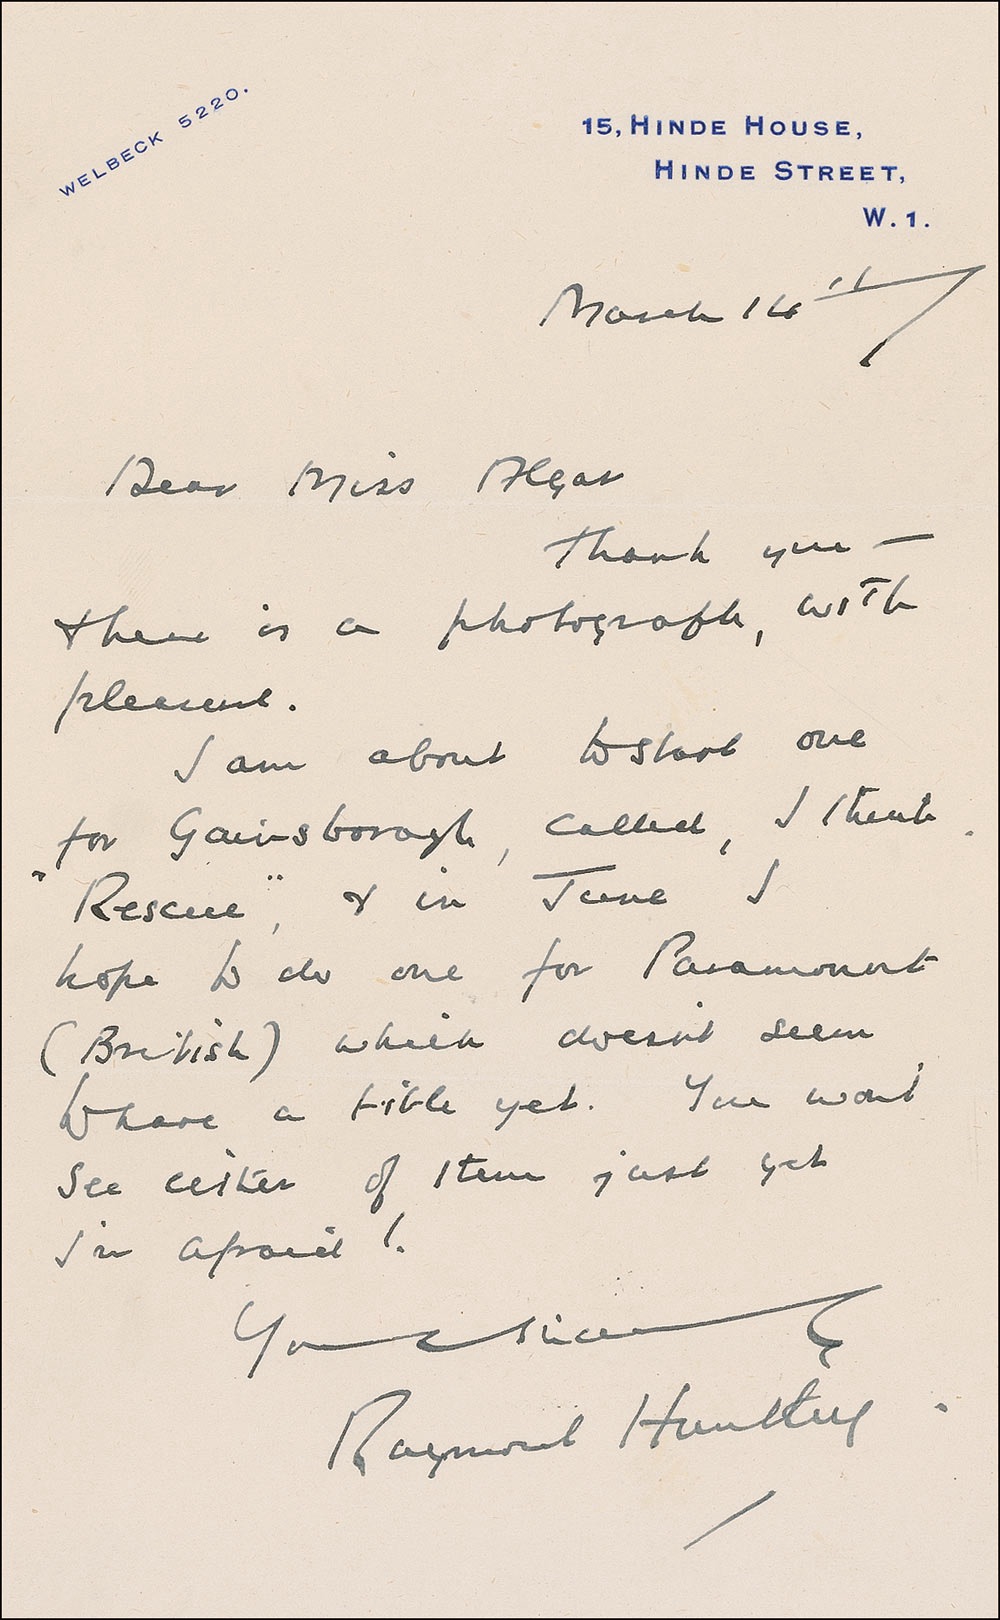 WELBECK 5220.
15, HINDE HOUSE,
HINDE STREET,
W. 1.
March 14th
Dear Miss Algar
Thank you —
there is a photograph, with
pleasure.
I am about to start one
for Gainsborough, called, I think
"Rescue", & in June I
hope to do one for Paramount
(British) which doesn't seem
to have a title yet. You won't
see either of them just yet
I'm afraid!
Yours sincerely
Raymond Huntley.